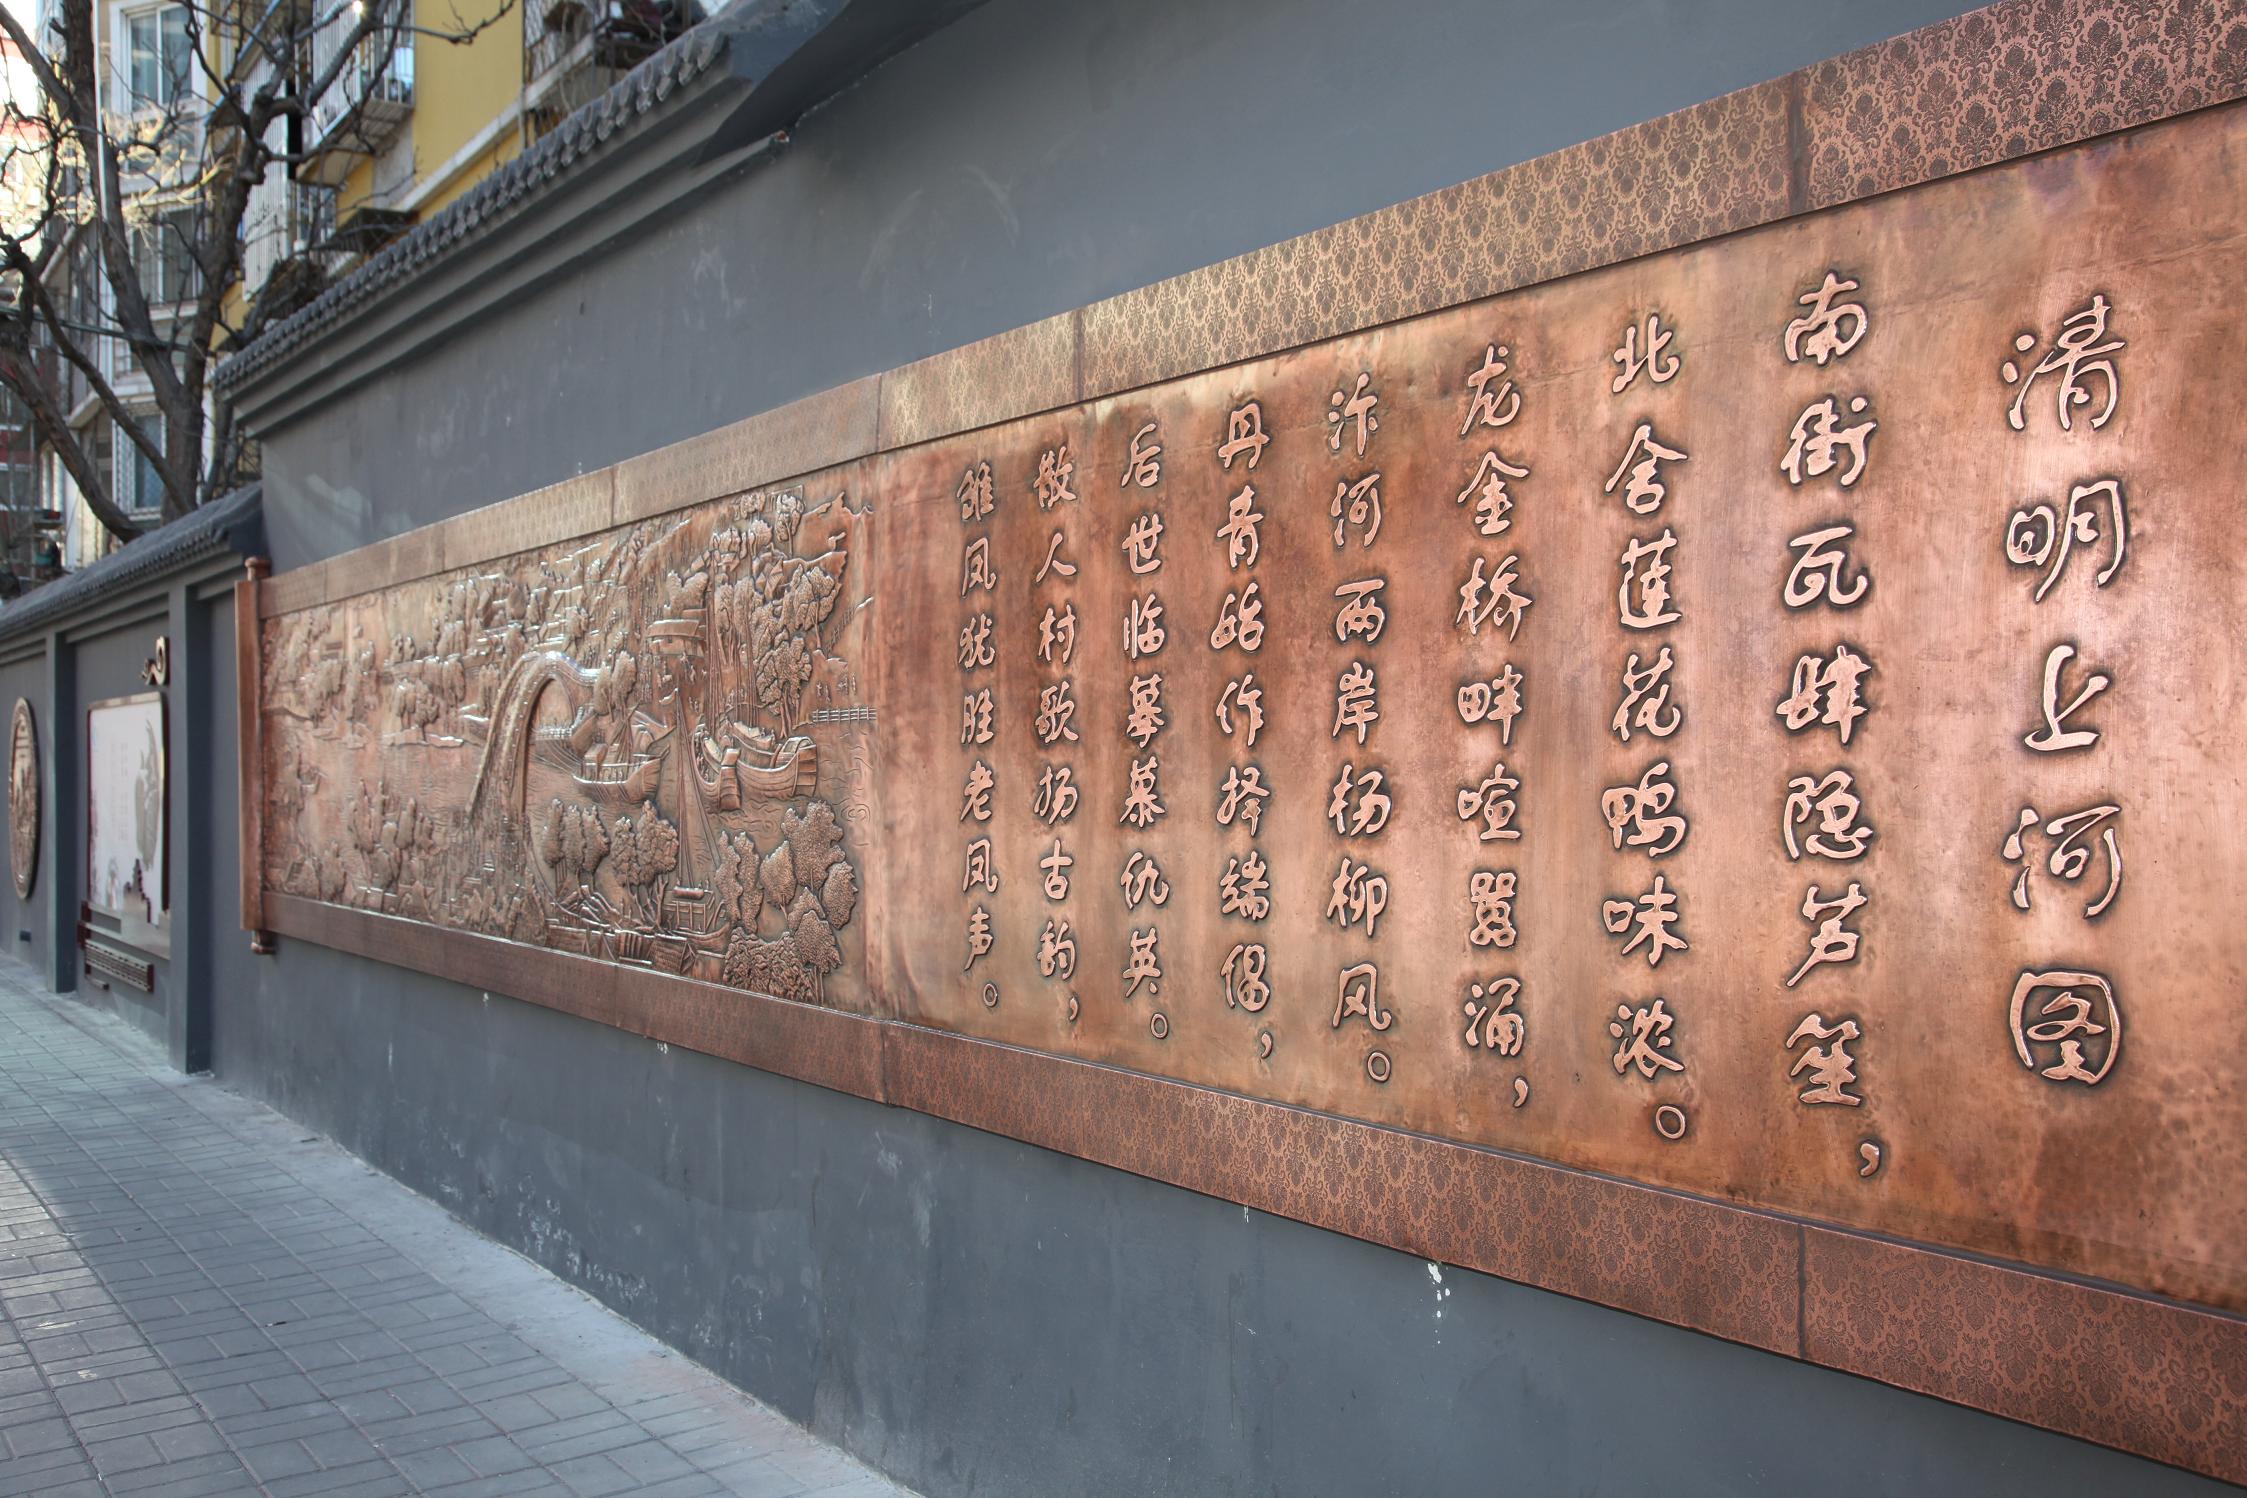 清明上河图
南街瓦肆隐芦笙，
北舍莲花鸭味浓。
龙金桥畔喧嚣涌，
汴河两岸杨柳风。
丹青始作择端倡，
后世临摹慕仇英。
散人村歌扬古韵，
雏凤犹胜老凤声。